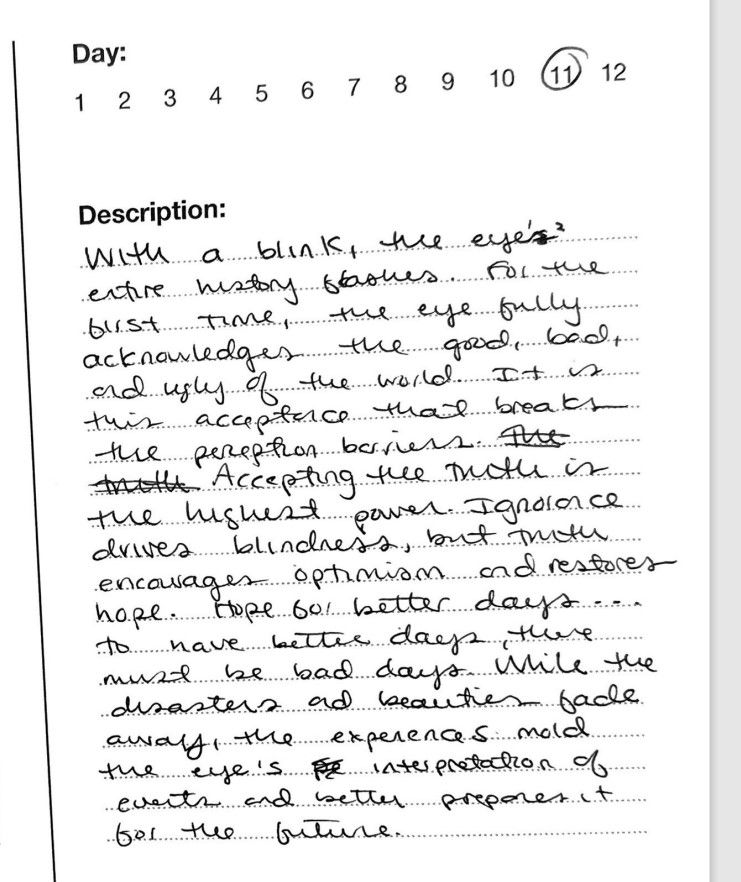 Day:
1 2 3 4 5 6 7 8 9 10 11 12
Description:
With a blink, the eye's
entire history flashes. For the
first time, the eye fully
acknowledges the good, bad,
and ugly of the world. It is
this acceptance that breaks
the perception barriers. The
truth Accepting the truth is
the highest power. Ignorance
drives blindness, but truth
encourages optimism and restores
hope. Hope for better days...
to have better days, there
must be bad days. While the
disasters and beauties fade
away, the experences mold
the eye's interpretation of
events and better prepares it
for the future.